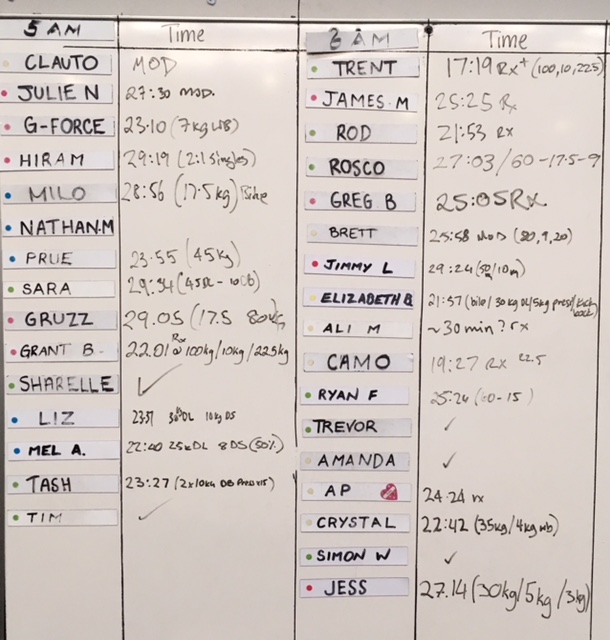 5 AM Time
CLAUTO MOD
JULIE N 27:30 MOD.
G-FORCE 23.10 (7kg WB)
HIRAM 29:19 (2:1 singles)
MILO 28:56 (17.5kg) Bike
NATHAN.M
PRUE 23.55 (45kg)
SARA 29:34 (45DL - 10DB)
GRUZZ 29.05 (17.5 80kg
GRANT B. 22.01 Rx @ 100kg/10kg/22.5kg
SHARELLE ✓
LIZ 23:51 30kg DL 10kg DS
MEL A. 22:40 25kDL 8DS (50%)
TASH 23:27 (2x10kg DB Press x15)
TIM ✓
Time
TRENT 17:19 Rx+ (100,10,225)
JAMES.M 25:25 Rx
ROD 21:53 RX
ROSCO 27:03/60-17.5-9
GREG B 25:05 RX
BRETT 25:58 MOD (80,9,20)
JIMMY L 29:24 (50/10m)
ELIZABETH B 21:57 (bike/30kg DL/5kg press/kick back)
ALI M ~30 min? rx
CAMO 19:27 RX 22.5
RYAN F 25:24 (60-15)
TREVOR ✓
AMANDA ✓
AP 24.24 rx
CRYSTAL 22:42 (35kg/4kg wb)
SIMON W ✓
JESS 27.14 (30kg/5kg/3kg)